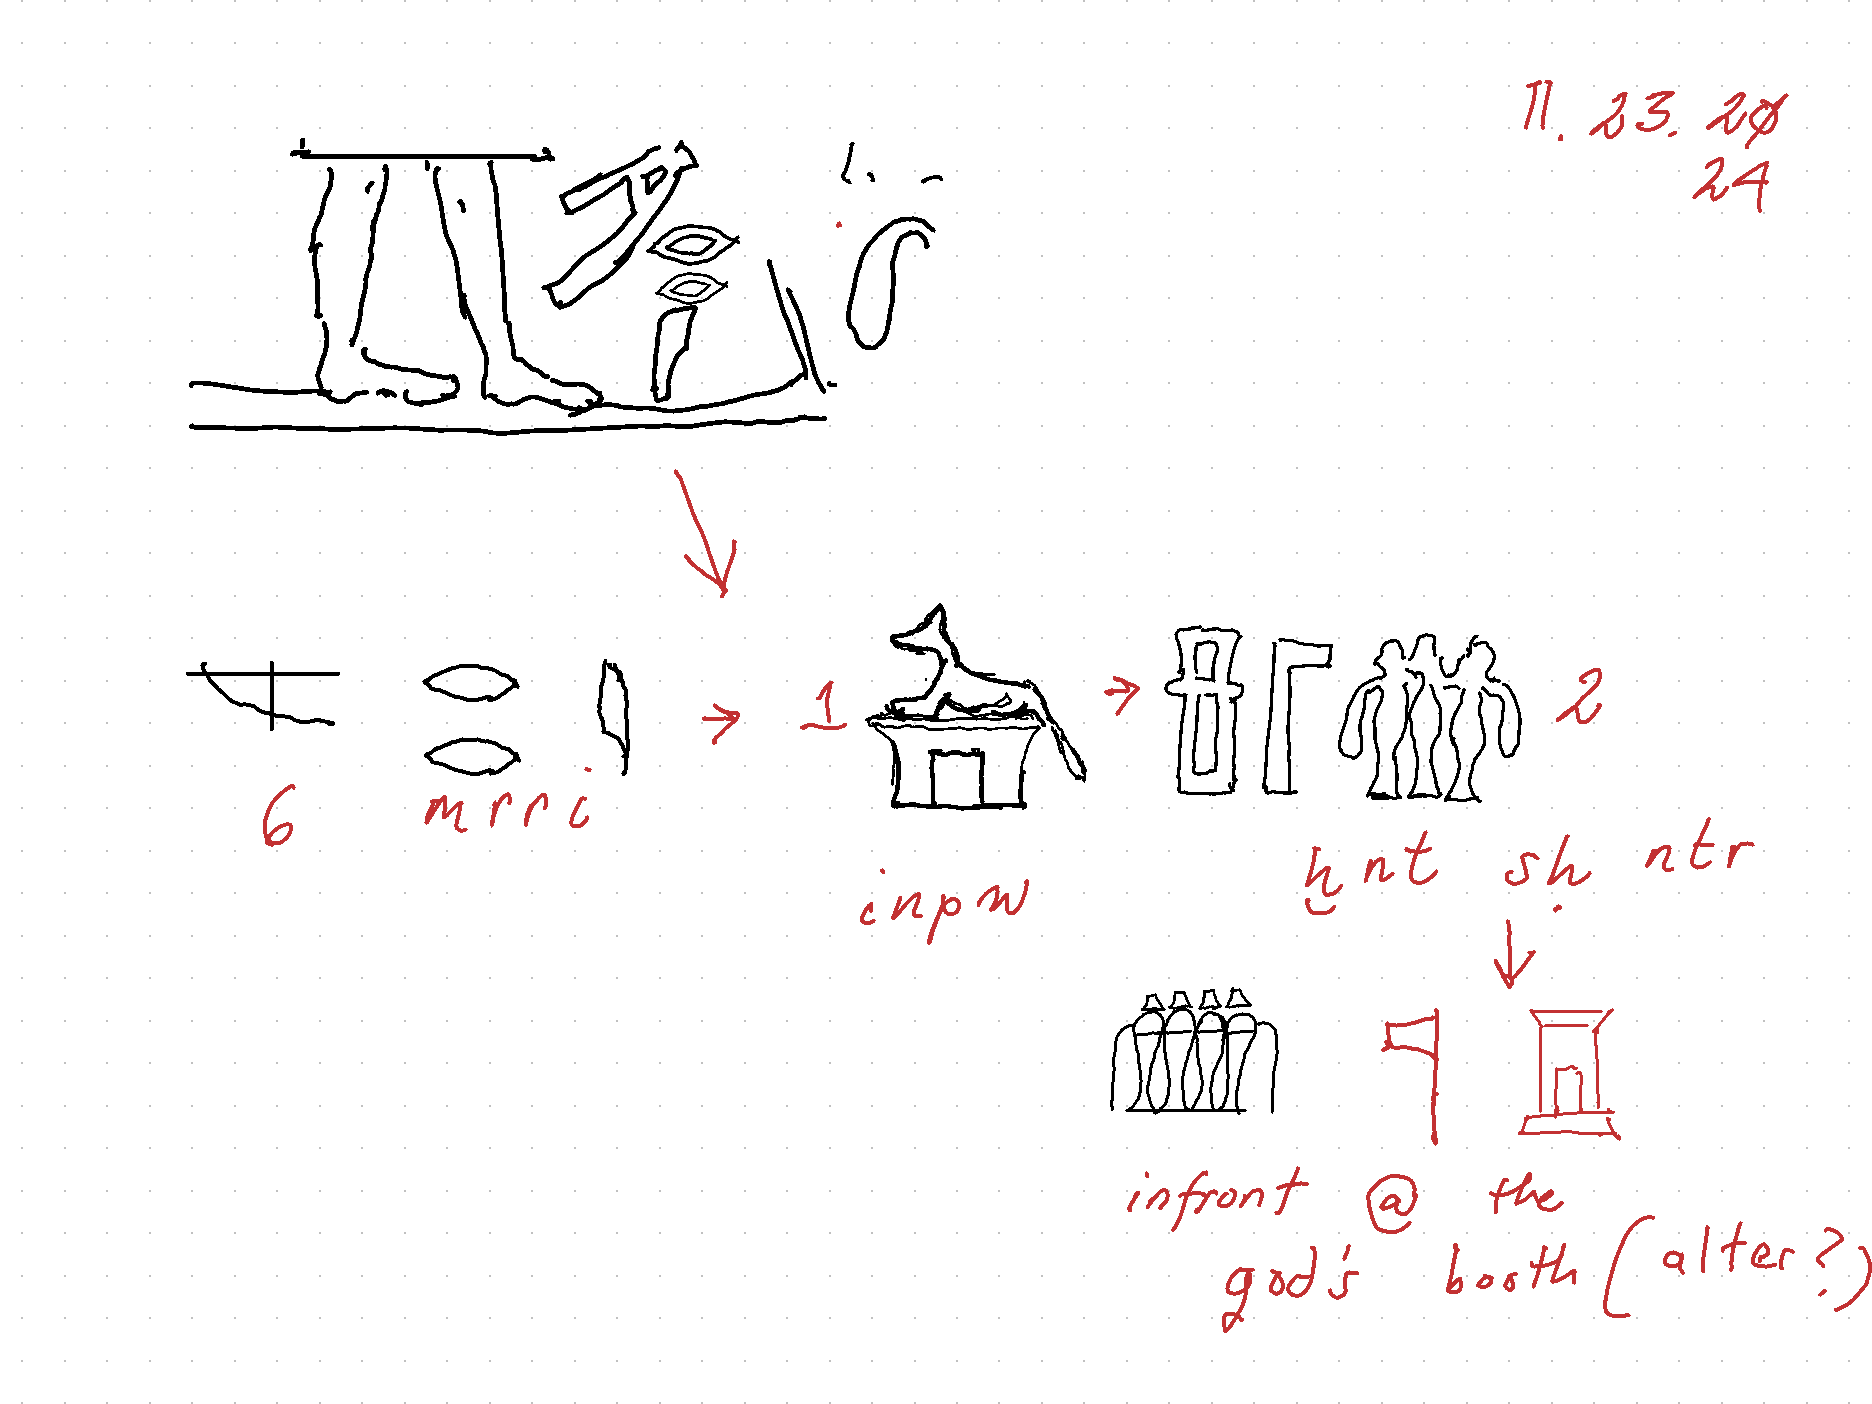 11. 23. 20
24
1
2
6
mrri
inpw
ḫnt sḥ ntr
infront @ the
god's booth (alter?)